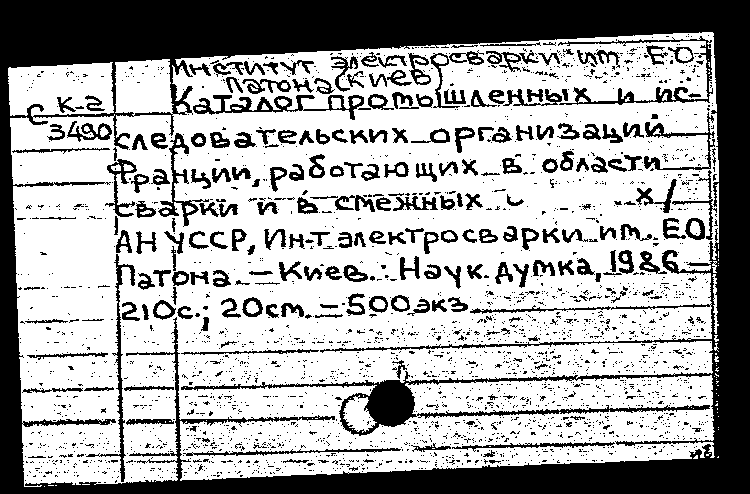 Институт электросварки им. Е.О.
Патона (Киев)
С К-2
3490
Каталог промышленных и ис-
следовательских организаций
Франции, работающих в области
сварки и в смежных
АН УССР, Ин-т электросварки им. Е.О.
Патона. – Киев.: Наук. думка, 1986 –
210с.; 20см. – 500экз.